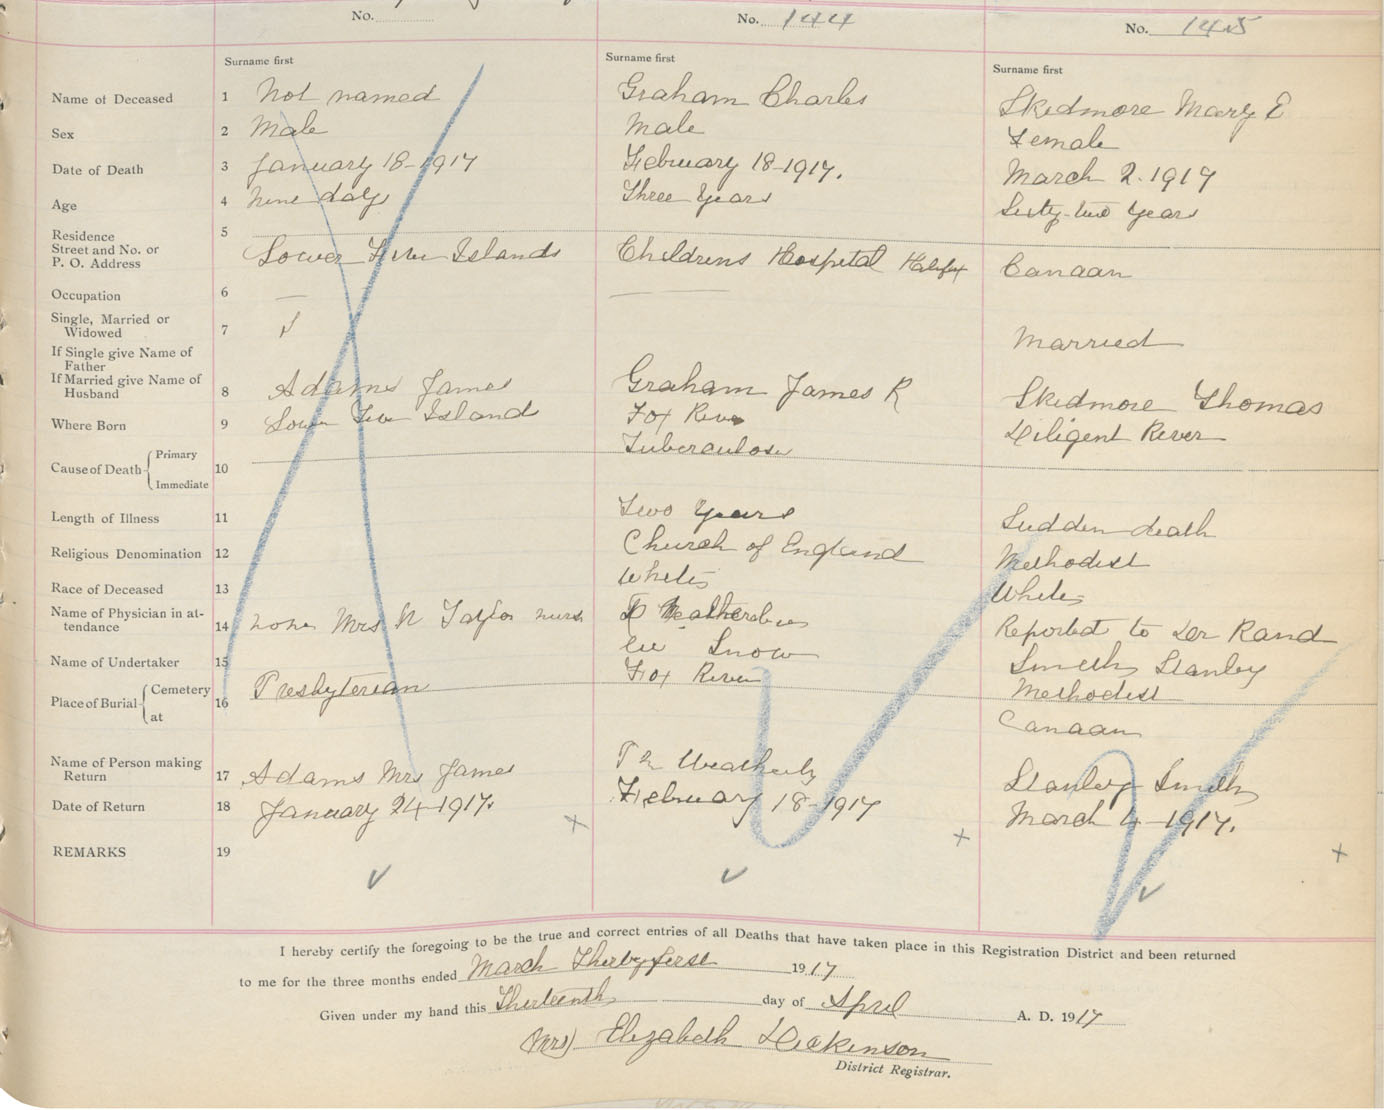 No.
No. 144
No. 145
Surname first
Surname first
Surname first
Name of Deceased 1 Not named Graham Charles Skidmore Mary E
Sex 2 Male Male Female
Date of Death 3 January 18-1917 February 18-1917. March 2. 1917
Age 4 nine days Three Years Sixty-two Years
Residence
Street and No. or
P. O. Address 5 Lower Five Islands Childrens Hospital Halifax Canaan
Occupation 6 —
Single, Married or
Widowed 7 S Married
If Single give Name of
Father
If Married give Name of
Husband 8 Adams James Graham James R Skidmore Thomas
Where Born 9 Lower Five Island Fox River Diligent River
Cause of Death Primary
Immediate 10 Tuberculosis
Length of Illness 11 Two Years Sudden death
Religious Denomination 12 Church of England Methodist
Race of Deceased 13 White White
Name of Physician in at-
tendance 14 none Mrs N Taylor nurse Reported to Dr Rand
Name of Undertaker 15 Snow Smith Stanley
Place of Burial Cemetery
at 16 Presbyterian Fox River Methodist
Canaan
Name of Person making
Return 17 Adams Mrs James Stanley Smith
Date of Return 18 January 24-1917. February 18-1917 March 4-1917.
REMARKS 19
I hereby certify the foregoing to be the true and correct entries of all Deaths that have taken place in this Registration District and been returned
to me for the three months ended March Thirty first 1917
Given under my hand this Thirteenth day of April A. D. 1917
(Mrs) Elizabeth Dickinson
District Registrar.